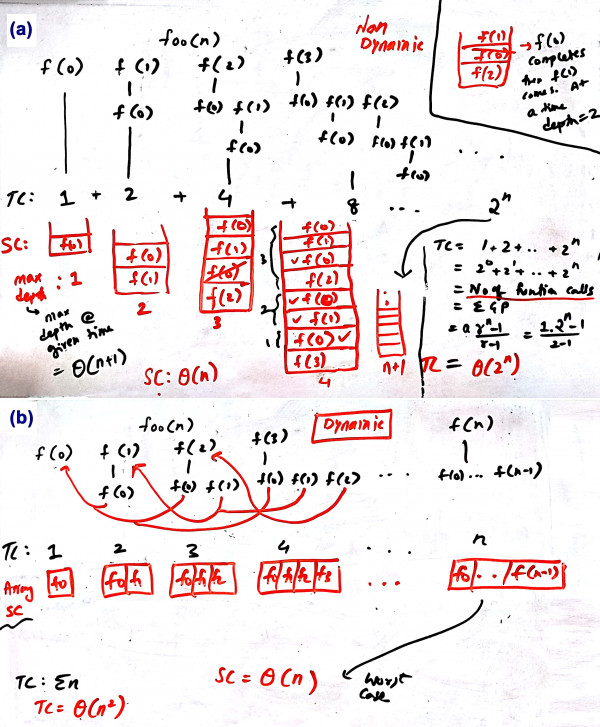 (a)
foo(n)
Non
Dynamic
f(0) f(1) f(2) f(3)
f(0) f(0) f(1) f(0) f(1) f(2)
f(0) f(0) f(0) f(1)
f(0)
f(1)
f(0)
f(2)
→ f(0)
completes
then f(1)
comes. At
a time
depth=2
...
TC: 1 + 2 + 4 + 8 ... 2^n
SC:
f(0)
f(0)
f(1)
f(0)
f(1)
f(0)
f(2)
f(0)
f(1)
✓ f(0)
f(2)
✓ f(0)
✓ f(1)
f(0) ✓
f(3)
3
2
1
max
depth : 1
2
3
4
n+1
↳ max
depth @
given time
= θ(n+1)
SC: θ(n)
TC = 1+2+..+2^n
= 2^0+2^1+..+2^n
= No of function calls
= Σ GP
= a r^n-1/r-1 = 1.2^n-1/2-1
TC = θ(2^n)
(b)
foo(n)
Dynamic
f(0) f(1) f(2) f(3) f(n)
f(0) f(0) f(1) f(0) f(1) f(2) ... f(0)... f(n-1)
TC: 1 2 3 4 .... n
Array
SC
f0
f0 f1
f0 f1 f2
f0 f1 f2 f3
...
f0 .. f(n-1)
SC = θ(n)
Worst
Case
TC: Σn
TC = θ(n²)